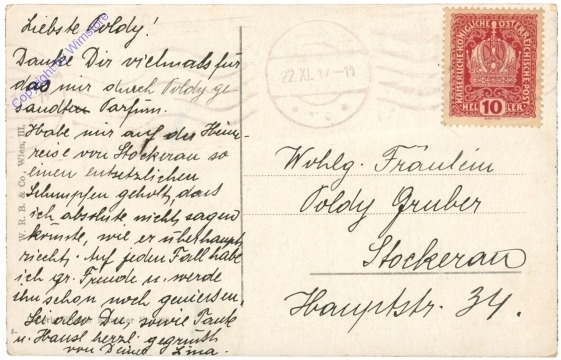 Liebste Poldy!
Danke Dir vielmals für
das mir durch Poldy ge-
sandten Parfüm.
Habe mir auf der Heim-
reise von Stockerau so
einen entsetzlichen
Schnupfen geholt, dass
ich absolute nichts sagen
könnte, wie er überhaupt
riecht. Auf jeden Fall habe
ich gr. Freude u. werde
ihn schon noch geniessen.
Sei also Du, sowie Tant
u. Hansl herzl. gegrüßt
von Deiner Lina.
Copyright by Wimstore
W. R. B. & Co., Wien, III.
22.XI.17-11
KAISERLICHE KÖNIGLICHE ÖSTERREICHISCHE POST
HEL 10 LER
Wohlg. Fräulein
Poldy Gruber
Stockerau
Hauptstr. 34.